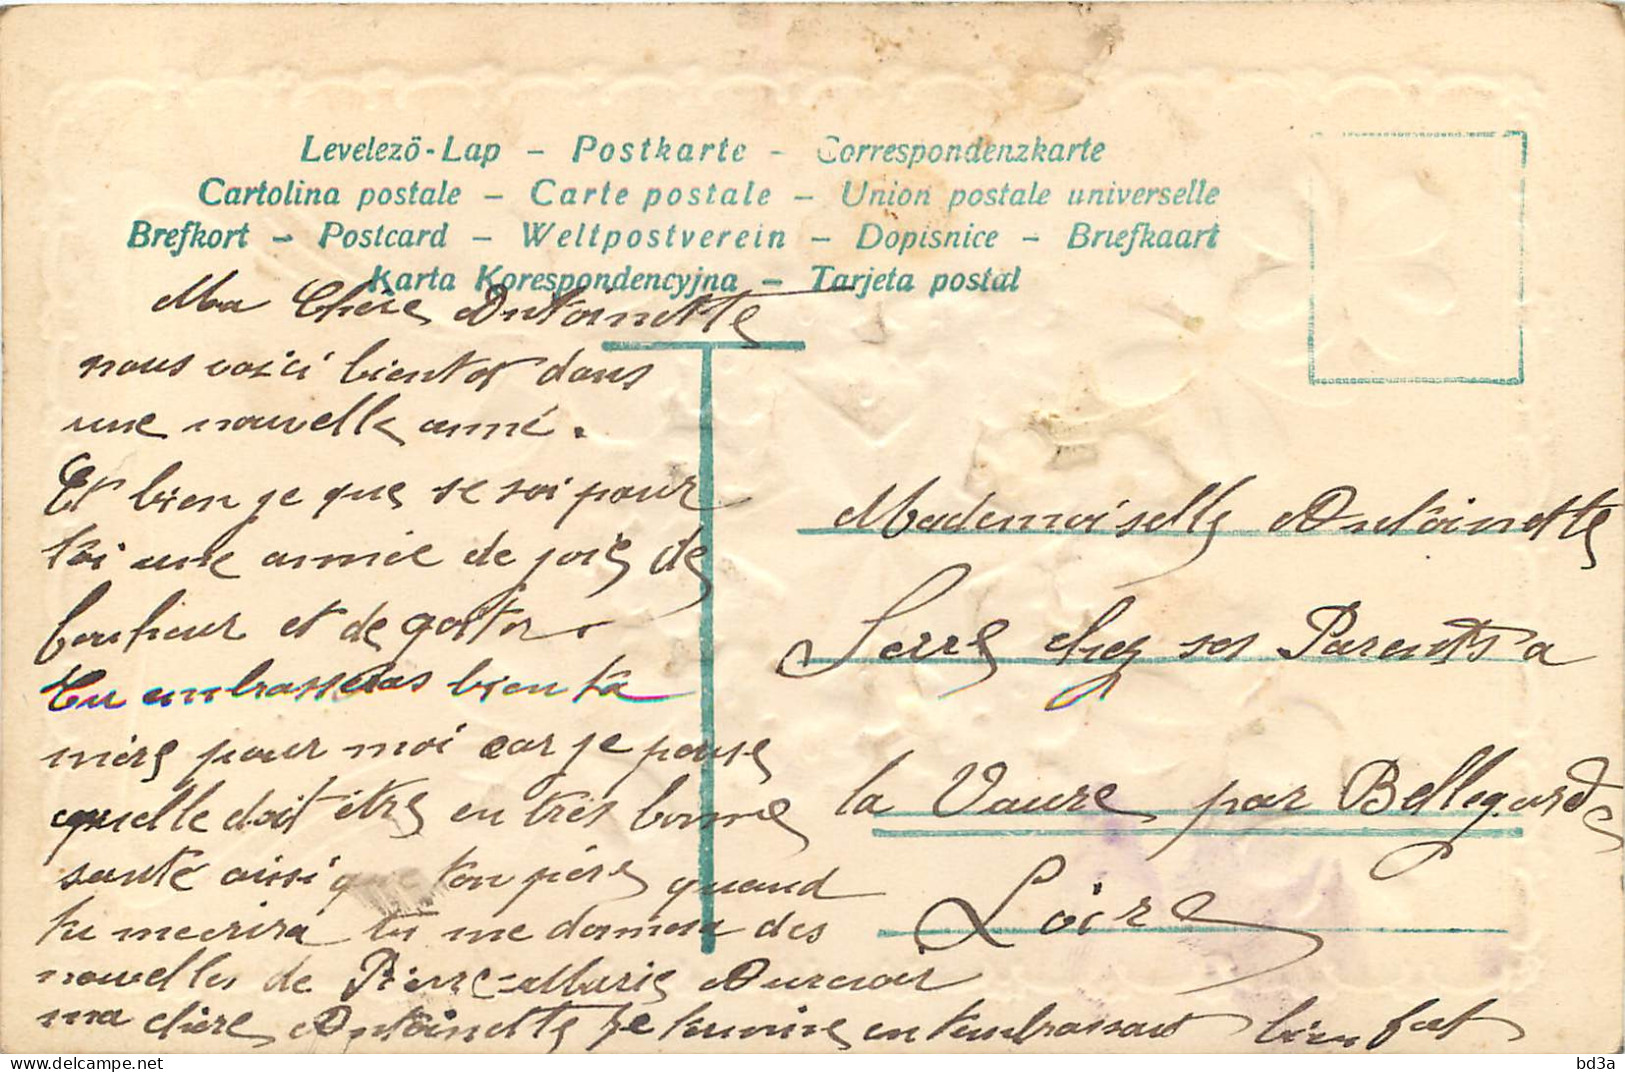 Levelező-Lap – Postkarte – Correspondenzkarte
Cartolina postale – Carte postale – Union postale universelle
Brefkort – Postcard – Weltpostverein – Dopisnice – Briefkaart
Karta Korespondencyjna – Tarjeta postal
Ma Chère Antoinette
nous voici bientot dans
une nouvelle anné.
Et bien je que se soi pour
toi une année de joie de
bonheur et de
Tu embrasseras bien ta
mère pour moi car je pense
quelle doit être en très bonne
santé ainsi que ton père quand
tu mecrira tu me donnera des
nouvelles de Pierre-Marie
ma chère Antoinette je termine en tembrassant bien fort
Mademoiselle Antoinette
Serre chez ses Parents a
la Vaure par Bellegarde
Loire
bd3a